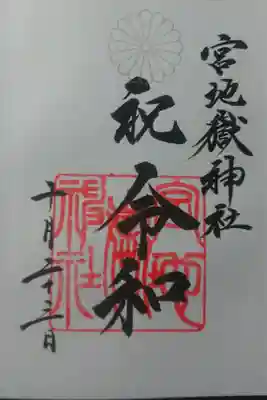 宮地嶽神社
祝令和
十月二十二日
宮地
嶽神社